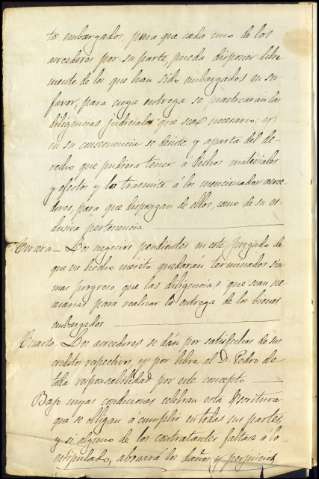 tos embargados para que cada uno de los
acredores por su parte, pueda disponer libre
mente de los que han sido embargados en su
favor, para cuya entrega se practicaran las
diligencias judiciales que sean necesarias y
en su consecuencia se desiste y aparta del de
recho que pudiera tener a dichos materiales
y efectos y los trasmite á los mencionados acree
dores para que dispongan de ellos como de su es
clusiva pertenencia
Tercera _ Los negocios pendientes en este juzgado de
que va hecho merito quedarán terminados sin
mas progreso que las diligencias que sean ne
cesarias para realizar la entrega de los bienes
embargados
Cuarta. Los acredores se dán por satisfechos de sus
creditos respectivos y por libre al D. Pedro de
toda responsabilidad por este concepto
Bajo cuyas condiciones celebran esta Escritura
que se obligan a cumplir en todas sus partes,
y si alguno de los contratantes faltase a lo
estipulado, abonará los daños y perjuicios